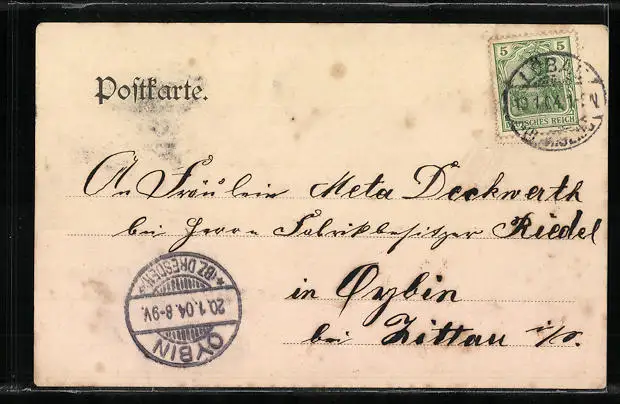 Postkarte.
5 5
DEUTSCHES REICH
LÖBAU
19.1.04
An Fräulein Meta Deckwerth
bei Herrn Fabrikbesitzer Riedel
in Oybin
bei Zittau i/S.
* (BZ. DRESDEN) *
20.1.04.8-9V.
OYBIN